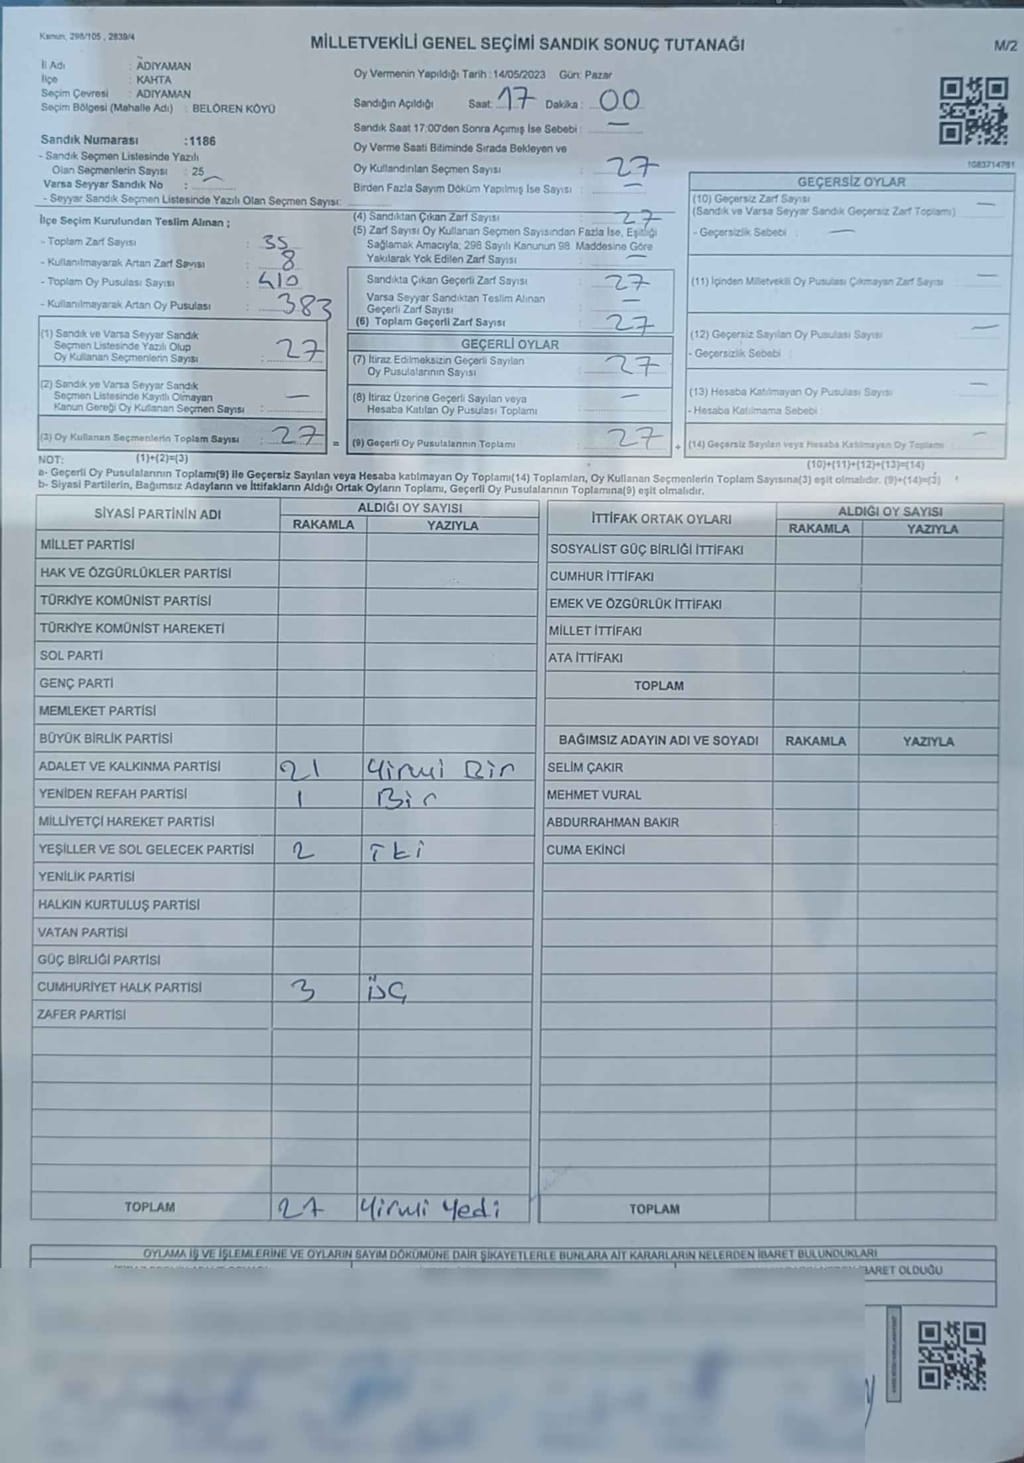 Kanun, 298/105 , 2839/4
MİLLETVEKİLİ GENEL SEÇİMİ SANDIK SONUÇ TUTANAĞI
M/2
İl Adı : ADIYAMAN
İlçe : KAHTA
Seçim Çevresi : ADIYAMAN
Seçim Bölgesi (Mahalle Adı) : BELÖREN KÖYÜ
Sandık Numarası :1186
- Sandık Seçmen Listesinde Yazılı
Olan Seçmenlerin Sayısı : 25
Varsa Seyyar Sandık No :
- Seyyar Sandık Seçmen Listesinde Yazılı Olan Seçmen Sayısı:
Oy Vermenin Yapıldığı Tarih : 14/05/2023 Gün: Pazar
Sandığın Açıldığı Saat: 17 Dakika : 00
Sandık Saat 17:00'den Sonra Açımış İse Sebebi : —
Oy Verme Saati Bitiminde Sırada Bekleyen ve
Oy Kullandırılan Seçmen Sayısı : 27
Birden Fazla Sayım Döküm Yapılmış İse Sayısı : —
1083714781
İlçe Seçim Kurulundan Teslim Alınan ;
- Toplam Zarf Sayısı : 35
- Kullanılmayarak Artan Zarf Sayısı : 8
- Toplam Oy Pusulası Sayısı : 410
- Kullanılmayarak Artan Oy Pusulası : 383
(1) Sandık ve Varsa Seyyar Sandık
Seçmen Listesinde Yazılı Olup
Oy Kullanan Seçmenlerin Sayısı : 27
(2) Sandık ve Varsa Seyyar Sandık
Seçmen Listesinde Kayıtlı Olmayan
Kanun Gereği Oy Kullanan Seçmen Sayısı : —
(3) Oy Kullanan Seçmenlerin Toplam Sayısı : 27 =
(4) Sandıktan Çıkan Zarf Sayısı : 27
(5) Zarf Sayısı Oy Kullanan Seçmen Sayısından Fazla İse, Eşitliği
Sağlamak Amacıyla; 298 Sayılı Kanunun 98. Maddesine Göre
Yakılarak Yok Edilen Zarf Sayısı : —
Sandıkta Çıkan Geçerli Zarf Sayısı : 27
Varsa Seyyar Sandıktan Teslim Alınan
Geçerli Zarf Sayısı : —
(6) Toplam Geçerli Zarf Sayısı : 27
GEÇERLİ OYLAR
(7) İtiraz Edilmeksizin Geçerli Sayılan
Oy Pusulalarının Sayısı : 27
(8) İtiraz Üzerine Geçerli Sayılan veya
Hesaba Katılan Oy Pusulası Toplamı : —
(9) Geçerli Oy Pusulalarının Toplamı : 27 +
GEÇERSİZ OYLAR
(10) Geçersiz Zarf Sayısı : —
(Sandık ve Varsa Seyyar Sandık Geçersiz Zarf Toplamı)
- Geçersizlik Sebebi : —
(11) İçinden Milletvekili Oy Pusulası Çıkmayan Zarf Sayısı —
(12) Geçersiz Sayılan Oy Pusulası Sayısı —
- Geçersizlik Sebebi :
(13) Hesaba Katılmayan Oy Pusulası Sayısı —
- Hesaba Katılmama Sebebi :
(14) Geçersiz Sayılan veya Hesaba Katılmayan Oy Toplamı —
NOT: (1)+(2)=(3) (10)+(11)+(12)+(13)=(14)
a- Geçerli Oy Pusulalarının Toplamı(9) ile Geçersiz Sayılan veya Hesaba katılmayan Oy Toplamı(14) Toplamları, Oy Kullanan Seçmenlerin Toplam Sayısına(3) eşit olmalıdır. (9)+(14)=(3)
b- Siyasi Partilerin, Bağımsız Adayların ve İttifakların Aldığı Ortak Oyların Toplamı, Geçerli Oy Pusulalarının Toplamına(9) eşit olmalıdır.
SİYASİ PARTİNİN ADI ALDIĞI OY SAYISI
RAKAMLA YAZIYLA
MİLLET PARTİSİ
HAK VE ÖZGÜRLÜKLER PARTİSİ
TÜRKİYE KOMÜNİST PARTİSİ
TÜRKİYE KOMÜNİST HAREKETİ
SOL PARTİ
GENÇ PARTİ
MEMLEKET PARTİSİ
BÜYÜK BİRLİK PARTİSİ
ADALET VE KALKINMA PARTİSİ 21 Yirmi Bir
YENİDEN REFAH PARTİSİ 1 Bir
MİLLİYETÇİ HAREKET PARTİSİ
YEŞİLLER VE SOL GELECEK PARTİSİ 2 İki
YENİLİK PARTİSİ
HALKIN KURTULUŞ PARTİSİ
VATAN PARTİSİ
GÜÇ BİRLİĞİ PARTİSİ
CUMHURİYET HALK PARTİSİ 3 ÜÇ
ZAFER PARTİSİ
TOPLAM 27 Yirmi Yedi
İTTİFAK ORTAK OYLARI ALDIĞI OY SAYISI
RAKAMLA YAZIYLA
SOSYALİST GÜÇ BİRLİĞİ İTTİFAKI
CUMHUR İTTİFAKI
EMEK VE ÖZGÜRLÜK İTTİFAKI
MİLLET İTTİFAKI
ATA İTTİFAKI
TOPLAM
BAĞIMSIZ ADAYIN ADI VE SOYADI RAKAMLA YAZIYLA
SELİM ÇAKIR
MEHMET VURAL
ABDURRAHMAN BAKIR
CUMA EKİNCİ
TOPLAM
OYLAMA İŞ VE İŞLEMLERİNE VE OYLARIN SAYIM DÖKÜMÜNE DAİR ŞİKAYETLERLE BUNLARA AİT KARARLARIN NELERDEN İBARET BULUNDUKLARI
BARET OLDUĞU